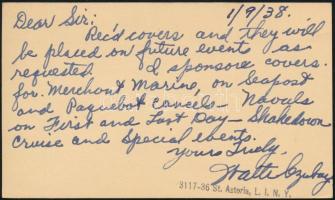 1/9/38.
Dear Sir:
Rec'd covers and they will
be placed on future event as
requested. I sponsore covers
for Merchant Marine, on Seapost
and Paquebot cancels – Navals
on First and Last Day – Shakedown
Cruise and Special events.
Yours Truly,
Walter Czubay
3117-36 St. Astoria, L. I. N. Y.